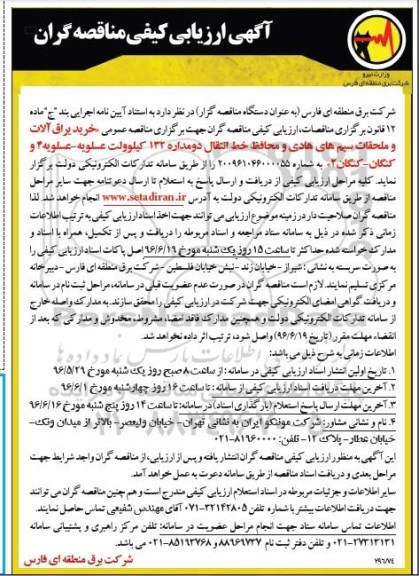 آگهی ارزیابی کیفی مناقصه گران
وزارت نیرو
شرکت برق منطقه ای فارس
شرکت برق منطقه ای فارس (به عنوان دستگاه مناقصه گزار) در نظر دارد به استناد آیین نامه اجرایی بند "ج" ماده
۱۲ قانون برگزاری مناقصات، ارزیابی کیفی مناقصه گران جهت برگزاری مناقصه عمومی «خرید یراق آلات
و ملحقات سیم های هادی و محافظ خط انتقال دومداره ۱۳۲ کیلوولت عسلویه-عسلویه۴ و
کنگان-کنگان۲» به شماره ۲۰۰۹۶۱۰۴۶۰۰۰۰۵۵ را از طریق سامانه تدارکات الکترونیکی دولت برگزار
نماید. کلیه مراحل ارزیابی کیفی از دریافت و ارسال پاسخ به استعلام تا ارسال دعوتنامه جهت سایر مراحل
مناقصه از طریق سامانه تدارکات الکترونیکی دولت به آدرس www.setadiran.ir انجام خواهد شد. لذا
مناقصه گران صلاحیت دار در زمینه موضوع ارزیابی می توانند جهت اخذ اسناد ارزیابی کیفی به ترتیب اطلاعات
زمانی ذکر شده در ذیل به سامانه ستاد مراجعه و اسناد مربوطه را دریافت و پس از تکمیل، همراه با اسناد و
مدارک خواسته شده حداکثر تا ساعت ۱۵ روز یک شنبه مورخ ۹۶/۶/۱۹ اصل پاکات اسناد ارزیابی کیفی را
به صورت سربسته به نشانی: شیراز - خیابان زند - نبش خیابان فلسطین - شرکت برق منطقه ای فارس - دبیرخانه
مرکزی تسلیم نمایند. لازم است مناقصه گران در صورت عدم عضویت قبلی در سامانه، مراحل ثبت نام در سامانه
و دریافت گواهی امضای الکترونیکی جهت شرکت در ارزیابی کیفی را محقق سازند. به مدارک واصله خارج
از سامانه تدارکات الکترونیکی دولت و همچنین مدارک فاقد امضا، مشروط، مخدوش و مدارکی که بعد از
انقضاء مهلت مقرر (تاریخ ۹۶/۶/۱۹) واصل شود، ترتیب اثر داده نخواهد شد.
اطلاعات زمانی به شرح ذیل می باشد:
۱. تاریخ اولین انتشار اسناد ارزیابی کیفی در سامانه: از ساعت ۸ صبح روز یک شنبه مورخ ۹۶/۵/۲۹
۲. آخرین مهلت دریافت اسناد ارزیابی کیفی از سامانه: تا ساعت ۱۶ روز چهارشنبه مورخ ۹۶/۶/۱
۳. آخرین مهلت ارسال پاسخ استعلام (بارگذاری اسناد) در سامانه: تا ساعت ۱۴ روز پنج شنبه مورخ ۹۶/۶/۱۶
۴. نام و نشانی مشاور: شرکت موننکو ایران به نشانی تهران - خیابان ولیعصر- بالاتر از میدان ونک-
خیابان عطار- پلاک ۱۲- تلفن: ۸۱۹۶۰۰۰۰-۰۲۱
این آگهی به منظور ارزیابی کیفی مناقصه گران انتشار یافته و پس از ارزیابی، از مناقصه گران واجد شرایط جهت
مراحل بعدی و دریافت اسناد مناقصه از طریق سامانه دعوت به عمل خواهد آمد.
سایر اطلاعات و جزئیات مربوطه در اسناد استعلام ارزیابی کیفی مندرج است و هم چنین مناقصه گران می توانند
جهت دریافت اطلاعات بیشتر با شماره تلفن ۳۲۱۴۲۸۰۵-۰۷۱ آقای مهندس شفیعی تماس حاصل نمایند.
اطلاعات تماس سامانه ستاد جهت انجام مراحل عضویت در سامانه: تلفن مرکز راهبری و پشتیبانی سامانه
۲۷۳۱۳۱۳۱-۰۲۱ و تلفن دفتر ثبت نام ۸۸۹۶۹۷۳۷ و ۸۵۱۹۳۷۶۸-۰۲۱ می باشد.
۲۹۶/۷۴
شرکت برق منطقه ای فارس